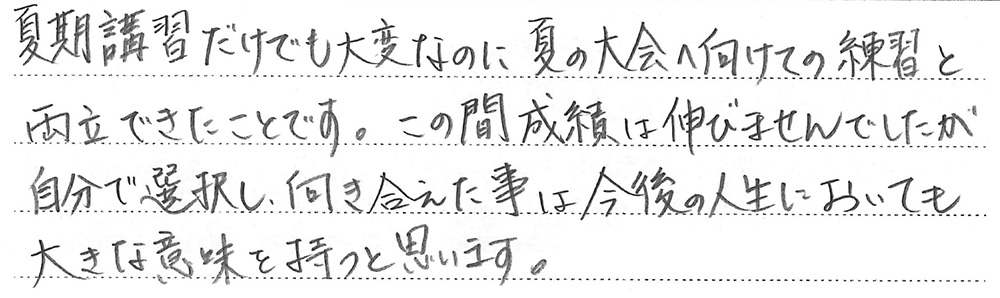 夏期講習だけでも大変なのに夏の大会へ向けての練習と
両立できたことです。この間成績は伸びませんでしたが
自分で選択し、向き合えた事は今後の人生においても
大きな意味を持つと思います。